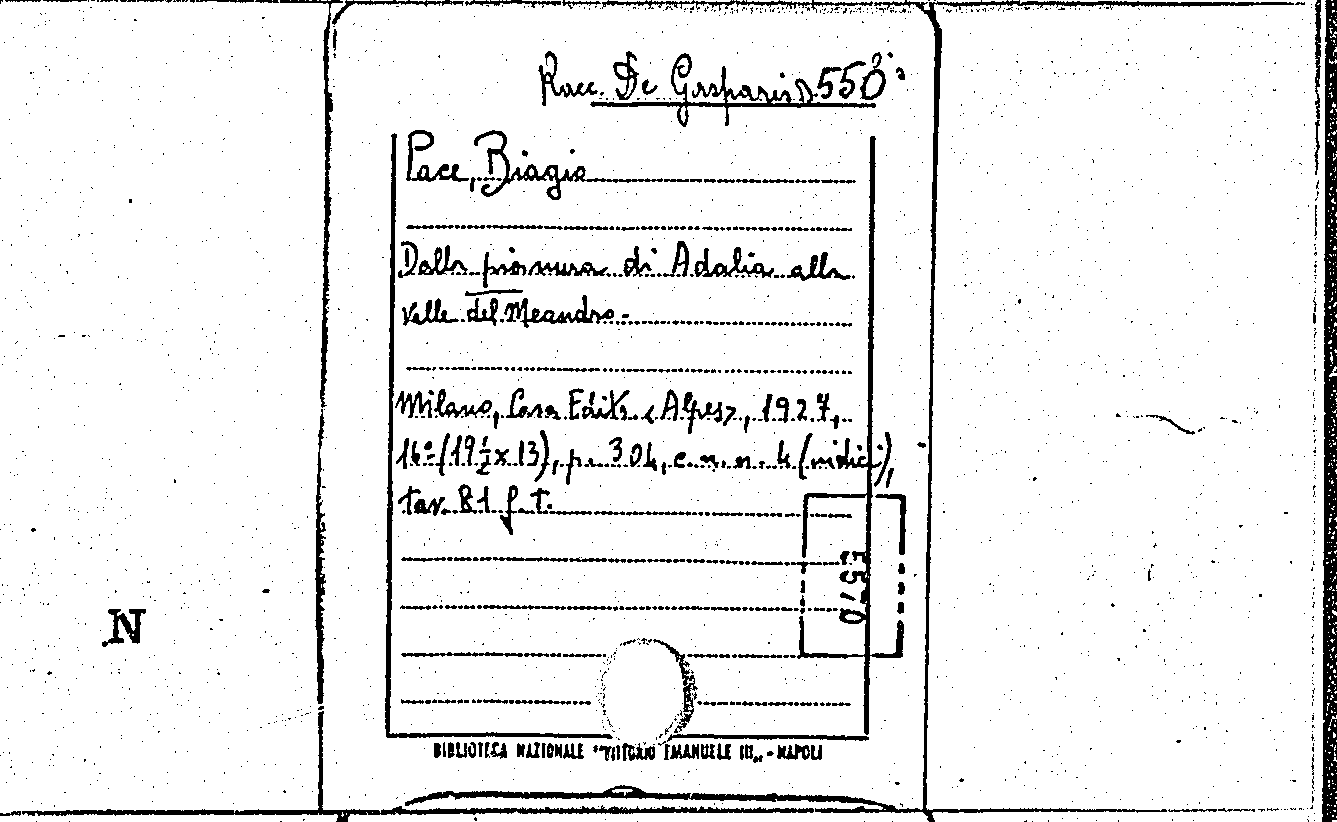 Racc. De Gasparis 550
Pace, Biagio
Dalla pianura di Adalia alla
valle del Meandro.
Milano, Casa Editr. "Alpes", 1927,
16° (19½ x 13), p. 304, c. n. n. 4 (indici),
tav. 81 f. t.
5570
N
BIBLIOTECA NAZIONALE "VITTORIO EMANUELE III" - NAPOLI